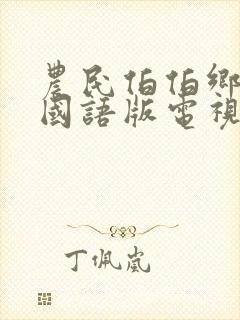 農民伯伯鄉
國語版電視
丁佩嵐